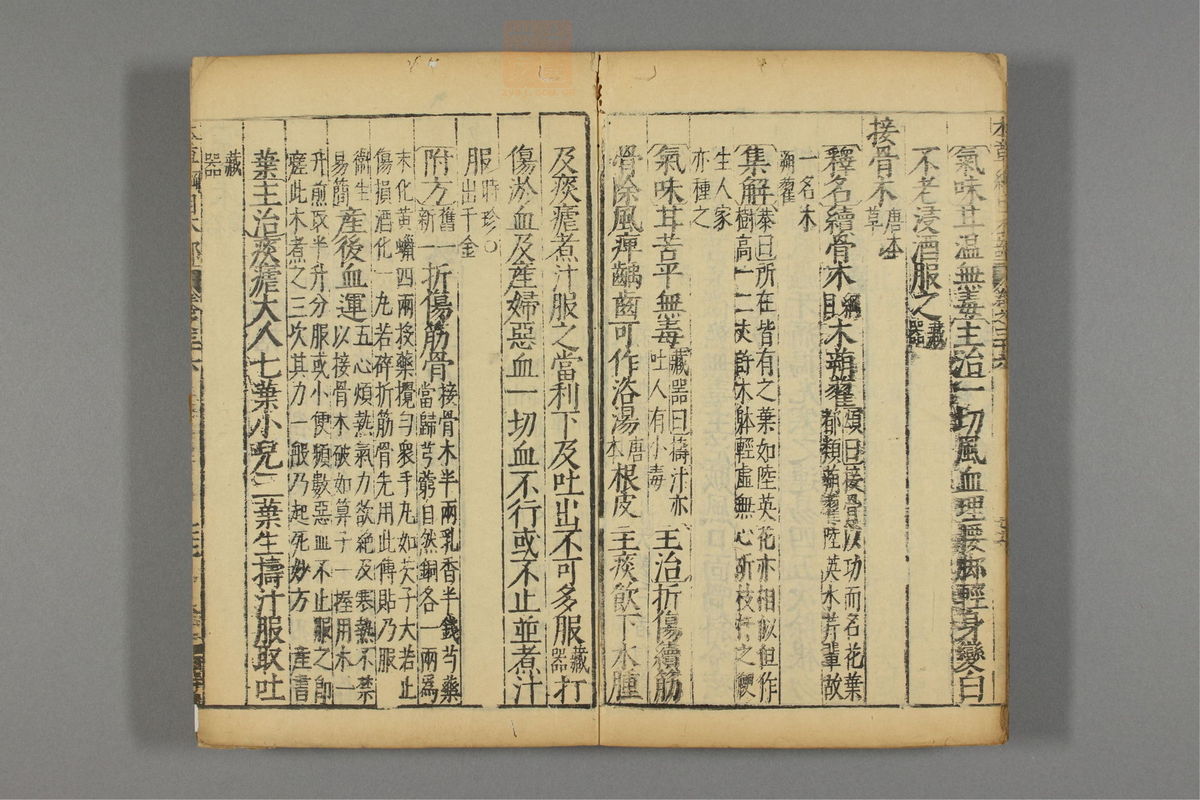 氣味甘溫無毒主治一切風血理腰脚輕身變白
不老浸酒服之藏器
接骨木唐本草
釋名續骨木綱目木蒴藋頌曰接骨以功而名花葉都類蒴藋陸英水芹輩故
一名木蒴藋
集解恭曰所在皆有之葉如陸英花亦相似但作樹高一二丈許木體輕虛無心斫枝扦之便
生人家亦種之
氣味甘苦平無毒藏器曰擣汁亦吐人有小毒主治折傷續筋
骨除風痺齲齒可作浴湯唐本根皮主痰飲下水腫
及痰瘧煮汁服之當利下及吐出不可多服藏器打
傷瘀血及產婦惡血一切血不行或不止並煮汁
服時珍○出千金
附方舊一新一折傷筋骨接骨木半兩乳香半錢芍藥當歸芎藭自然銅各一兩爲
末化黃蠟四兩投藥攪勻衆手丸如芡子大若止傷損酒化一丸若碎折筋骨先用此傅貼乃服
衛生易簡產後血運五心煩熱氣力欲絕及寒熱不禁以接骨木破如筭子一握用水一
升煎取半升分服或小便頻數惡血不止服之卽瘥此木煮之三次其力一般乃起死妙方產書
葉主治痰瘧大人七葉小兒二葉生擣汁服取吐
藏器